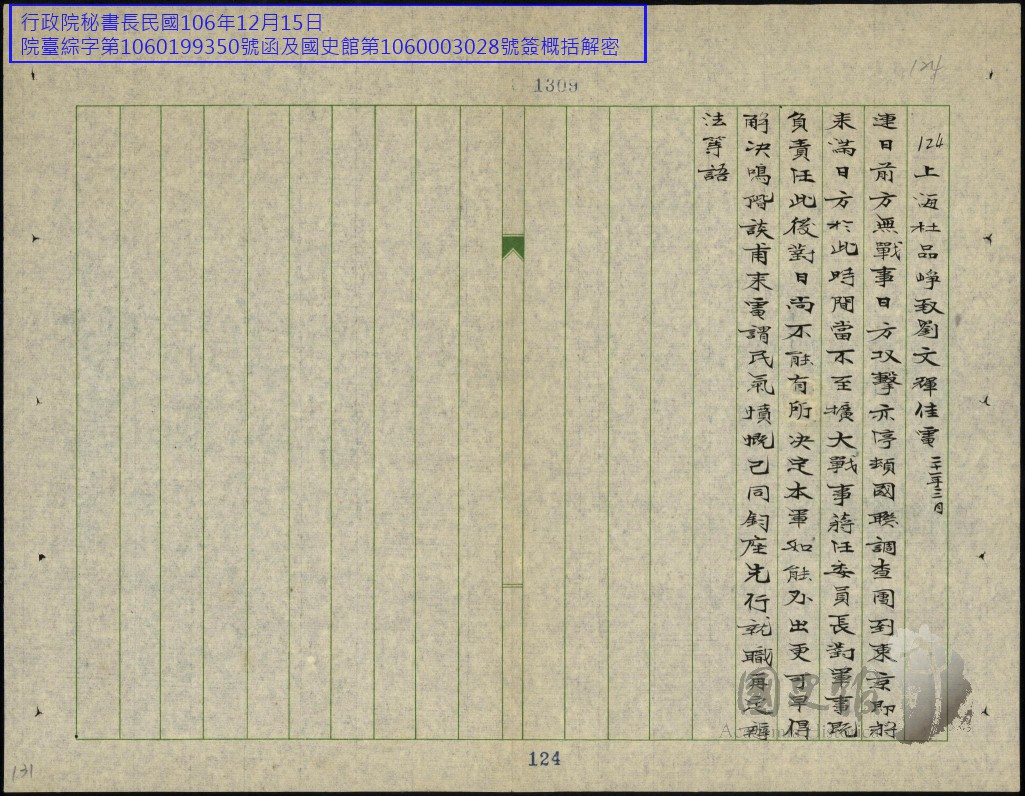 行政院秘書長民國106年12月15日
院臺綜字第1060199350號函及國史館第1060003028號簽概括解密
124
1309
124上海杜品崢致劉文輝佳電 二十一年三月
連日前方無戰事日方攻擊亦停頓國聯調查團到東京即將
來滿日方於此時間當不至擴大戰事蔣任委員長對軍事既
負責任此後對日尚不能有所決定本軍如能外出更可早得
解決鳴階談甫來電謂民氣憤慨已同鈞座先行就職再定辦
法等語
國史館
124
131